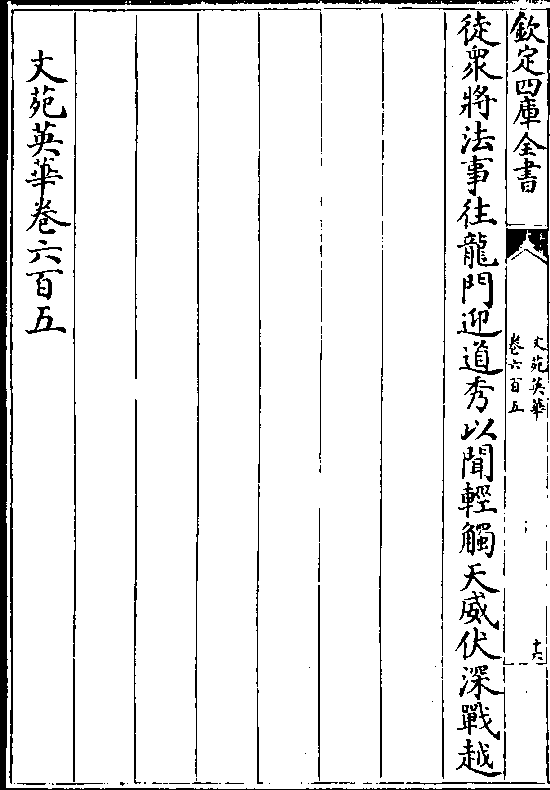 欽定四庫全書
文苑英華
卷六百五
十六
徒衆將法事往龍門迎道秀以聞輕觸天威伏深戰越
文苑英華卷六百五